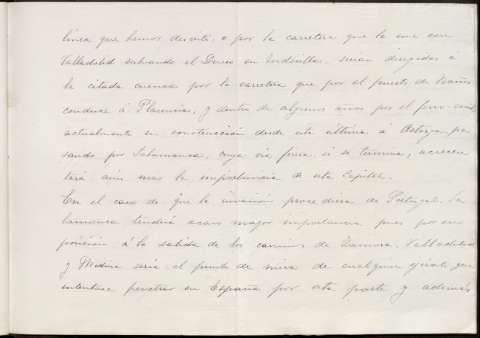 linea que hemos descrito, o por la carretera que la une con
Valladolid salvando el Duero en Tordesillas. seran dirigidas á
la citada cuenca por la carretera que por el puerto de Baños
conduce á Plasencia, y dentro de algunos años por el ferro-carril
actualmente en construccion desde esta última á Astorga pa
sando por Salamanca, cuya via ferrea si se termina, acrecen
tará aun mas la importancia de esta Capital.
En el caso de que la invasion procediera de Portugal, Sa
lamanca tendria acaso mayor importancia pues por su
posicion á la salida de los caminos de Zamora, Valladolid
y Medina seria el punto de mira de cualquier ejército que
intentase penetrar en España por esta parte y además